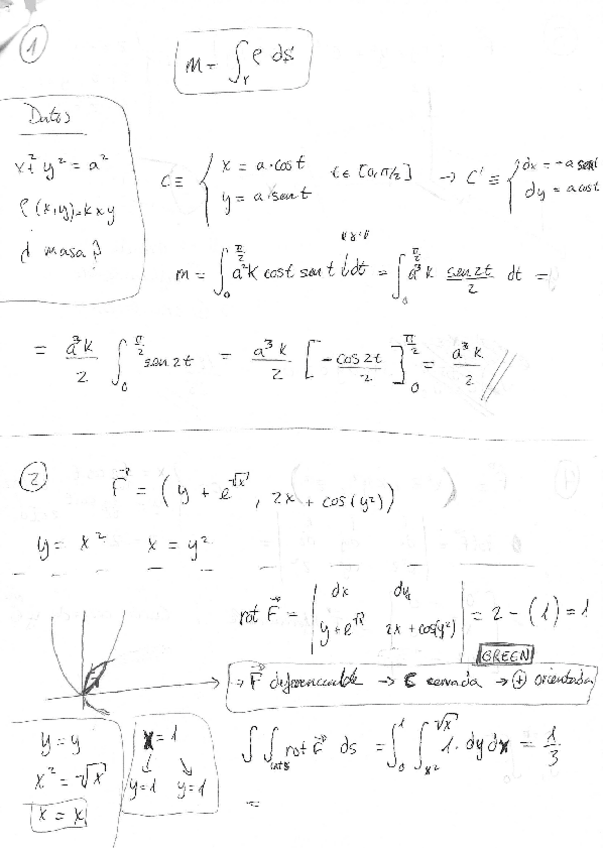 ①
m = ∫_γ ρ ds
Datos
x² + y² = a²
ρ(x,y)=kxy
¿ masa ?
C ≡ { x = a·cos t
y = a·sen t
t ∈ [0,π/2] → C' ≡ { dx = -a sen t
dy = a cos t
m = ∫₀^{π/2} a²k cost sent · dt = ∫₀^{π/2} a³ k sen2t/2 dt =
= a³k/2 ∫₀^{π/2} sen 2t = a³k/2 [ -cos 2t/2 ]₀^{π/2} = a³k/2 //
②
F⃗ = ( y + e^{√x}, 2x + cos(y²) )
y = x² x = y²
rot F⃗ = | dx dy
y+e^{√x} 2x + cos(y²) | = 2 - (1) = 1
GREEN
→ F⃗ diferenciable → C cerrada → ⊕ orientada
y = y
x² = √x
x = x
x = 1
y=1 y=1
∫∫_{int S} rot F⃗ ds = ∫₀¹ ∫_{x²}^{√x} 1· dy dx = 1/3
=